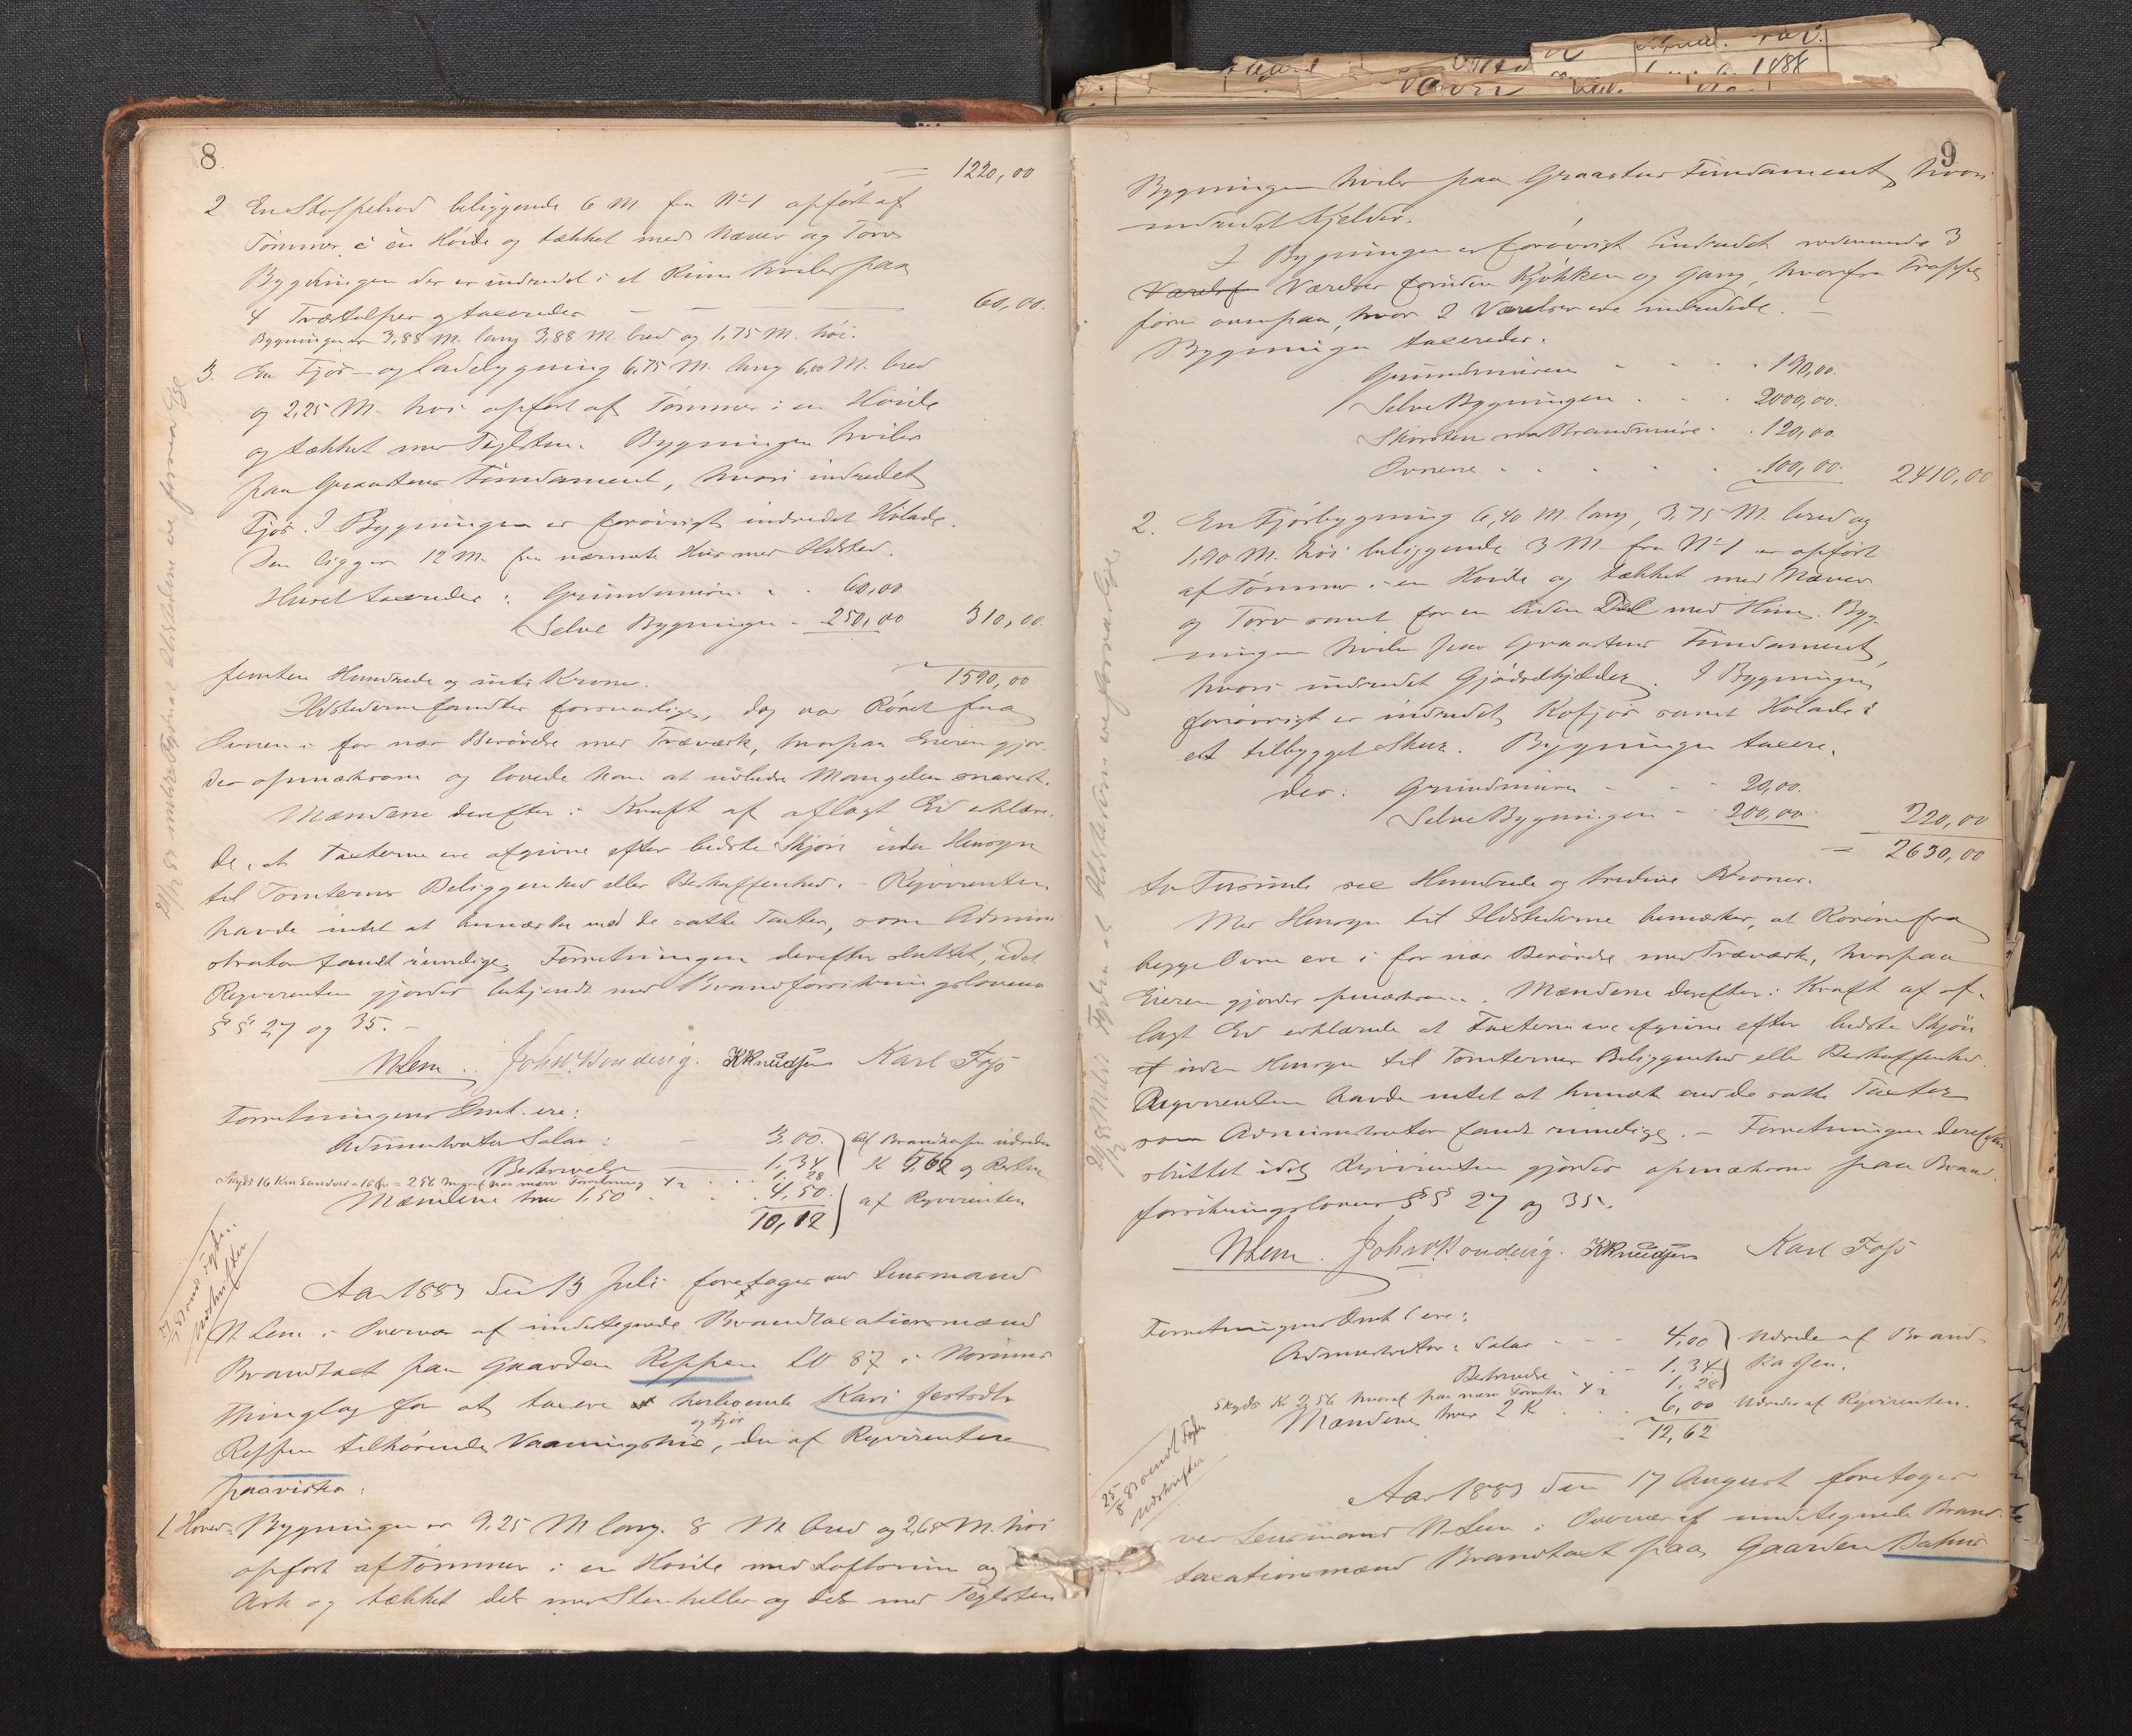 8
— 1220,00
2 En Stoppebod beliggende 6 M. fra No 1 opført af
Tømmer i en Høide og tækket med Næver og Torv
Bygningen der er indredet i et Rum hviler paa
4 Træstolper og taxeredes — — 60,00.
Bygningen er 3,88 M. lang 3,88 M. bred og 1,75 M. høi.
3. En Fjøs- og Ladebygning 6,75 M. lang 6,00 M. bred
og 2,25 M. høi opført af Tømmer i en Høide
og tækket med Teglsten. Bygningen hviler
paa Graastens Fundament, hvori indredet
Fjøs. I Bygningen er forøvrigt indredet Hølade.
Den ligger 12 M. fra nærmeste Hus med Ildsted.
Huset taxeredes: Grundmuren . . 60,00
Selve Bygningen - 250,00 310,00.
1590,00
femten Hundrede og nitti Kroner.
Ildstederne fandtes forsvarlige, dog var Røret fra
Ovnen i for nær Berørelse med Træværk, hvorpaa Eieren gjor-
des opmærksom og lovede han at udbedre Mangelen snarest.
Mændene derefter i Kraft af aflagt Ed erklære-
de, at Taxterne ere afgivne efter bedste Skjøn uden Hensyn
til Tomternes Beliggenhed eller Beskaffenhed. - Reqvirenten
havde intet at bemærke med de satte Taxter, som Admini-
strator fandt rimelige. Forretningen derefter sluttet, idet
Reqvirenten gjordes bekjendt med Brandforsikringslovens
§§ 27 og 35. -
N Lem . Joh. W. Bondevig. K Knudsen Karl Foss
Forretningens Omk. ere:
Administrator Salær: — 3,00.
Beskrivelse — 1,34
Af Brandkassen udredes
K 5,62 og Resten
Skyds 16 Km Sandvær a 16 Øre = 2,56 hvoraf paa nærv. Forretning ½ . . 1. 28
Mændene hver 1,50 . . . 4,50.
af Reqvirenten
10,12
21/12 83 meldt Fogden at Ildstedene ere forsvarlige
27/7 83 sendt Fogden
Udskrifter
Aar 1883 den 13 Juli foretages ved Lensmand
N Lem i Overvær af undertegnede Brandtaxationsmænd
Brandtaxt paa Gaarden Reppen LN 87 i Norums
Thinglag for at taxere de herboende Kari Jestsdtr
og Fjøs
Reppen tilhørende Vaaningshus, der af Reqvirenten
paavistes:
1. Hoved-Bygningen er 9,25 M lang. 8 M. bred og 2,64 M. høi
opført af Tømmer i en Høide med Loftsrum og
Ark og tækket dels med Stenheller og dels med Teglsten
9
Bygningen hviler paa Graastens Fundament, hvori
indredet Kjelder.
I Bygningen er forøvrigt indredet nedenunder 3
Værelser Værelser foruden Kjøkken og Gang, hvorfra Trappe
fører ovenpaa, hvor 2 Værelser ere indredede. —
Bygningen taxeredes:
Grundmuren . . . 190,00.
Selve Bygningen . . . 2000,00.
Skorsten med Brandmure . . 120,00.
Ovnene . . . . 100,00. 2410,00
2. En Fjøsbygning 6,40 M. lang, 3,75 M. bred og
1,90 M. høi beliggende 3 M. fra No 1 er opført
af Tømmer i en Høide og tækket med Næver
og Torv samt for en liden Del med Hun. Byg-
ningen hviler paa Graastens Fundament,
hvori indredet Gjødselkjelder. I Bygningen
forøvrigt er indredet Kofjøs samt Hølade i
et tilbygget Skur. Bygningen taxere-
des: Grundmuren - - - 20,00.
Selve Bygningen - 200,00. 220,00
2630,00
to Tusinde sex Hundrede og tredive Kroner.
Med Hensyn til Ildstederne bemærkes, at Rørene fra
begge Ovne ere i for nær Berørelse med Træværk, hvorpaa
Eieren gjordes opmærksom. Mændene derefter i Kraft af af-
lagt Ed erklærede at Taxterne ere afgivne efter bedste Skjøn
uden Hensyn til Tomternes Beliggenhed eller Beskaffenhed.
Reqvirenten havde intet at bemærke med de satte Taxter
som Administrator fandt rimelige. — Forretningen derefter
sluttet idet Reqvirenten gjordes opmærksom paa Brand-
forsikringslovens §§ 27 og 35.
N Lem . Joh. W Bondevig. K Knudsen Karl Foss
Forretningens Omk. ere:
Administrator: Salær - - - 4,00
Beskrivelse . . - 1,34
Udredes af Brand-
kassen.
Skyds Kr 2,56 hvoraf paa nærv. Forretn. ½ 1,28
Mændene hver 2 K . . . 6,00 Udredes af Reqvirenten.
12,62
21/12 83 Meldt Fogden at Ildstederne ere forsvarlige
25/8 83 sendt Fogden
Udskrifter
Aar 1883 den 17 August foretages
ved Lensmand N. Lem i Overvær af undertegnede Brand-
taxationsmænd Brandtaxt paa Gaarden